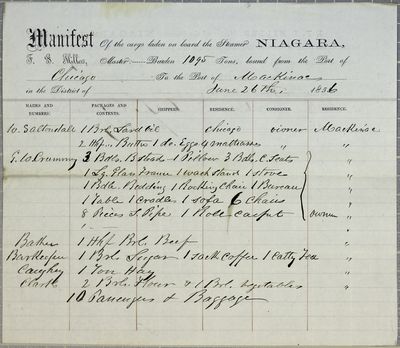 Manifest Of the cargo laden on board the Steamer NIAGARA,
Miller, Master Burden 1095 Tons, bound from the Port of
Chicago To the Port of Mackinac
in the District of June 26th, 1856
MARKS AND NUMBERS. PACKAGES AND CONTENTS. SHIPPERS. RESIDENCE. CONSIGNEE. RESIDENCE.
W. Saltonstall 1 Brl. Lard Oil Chicago owner Mackinac
2 Hf Butter 1 do. Eggs 4 mattrasses " "
3 Bdls. B Steads 1 Pillow 3 Bdls. C. Seats "
1 Lg. Frame 1 wash stand 1 stove "
1 Bdl. Bedding 1 Rocking Chair 1 Bureau "
1 Table 1 cradle 1 sofa 6 Chairs "
8 Pieces S. Pipe 1 Role carpet owner "
Baker 1 Hhf Brl. Beef "
Barkeeper 1 Brl. Sugar 1 sack coffee 1 catty Tea "
Caughey 1 Ton Hay "
Clark 2 Brls. Flour & 1 Brl. vegetables "
10 Passengers & Baggage